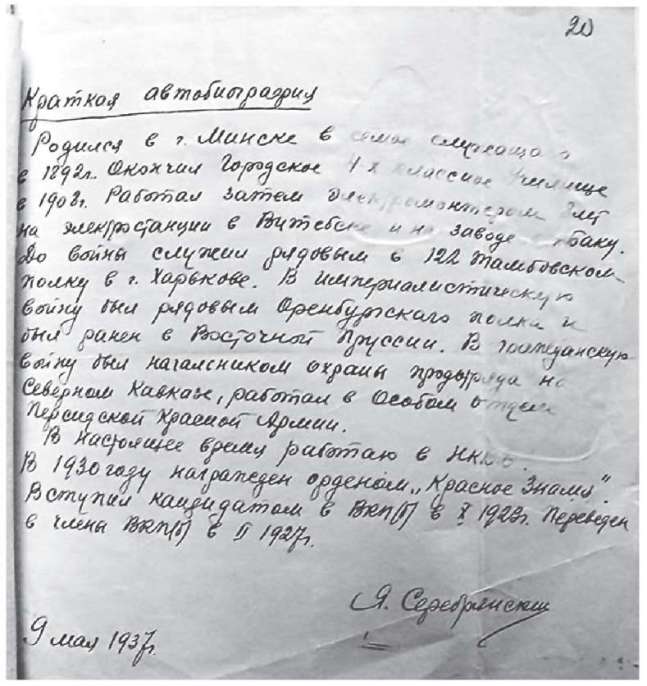 20
Краткая автобиография
Родился в г. Минске в семье служащего
в 1892г. Окончил Городское 4-х классное училище
в 1908г. Работал затем электромонтером
на электростанции в Витебске и на заводе Баку.
До войны служил рядовым в 122 Тамбовском
полку в г. Харькове. В империалистическую
войну был рядовым Оренбургского полка и
был ранен в Восточной Пруссии. В гражданскую
войну был начальником охраны продотряда на
Северном Кавказе, работал в Особом отделе
Персидской Красной Армии.
В настоящее время работаю в НКВД.
В 1930 году награжден орденом „Красное Знамя".
Вступил кандидатом в ВКП(б) в X 192 г. Переведен
в члены ВКП(б) в II 1927г.
Я. Серебрянский
9 мая 1937г.